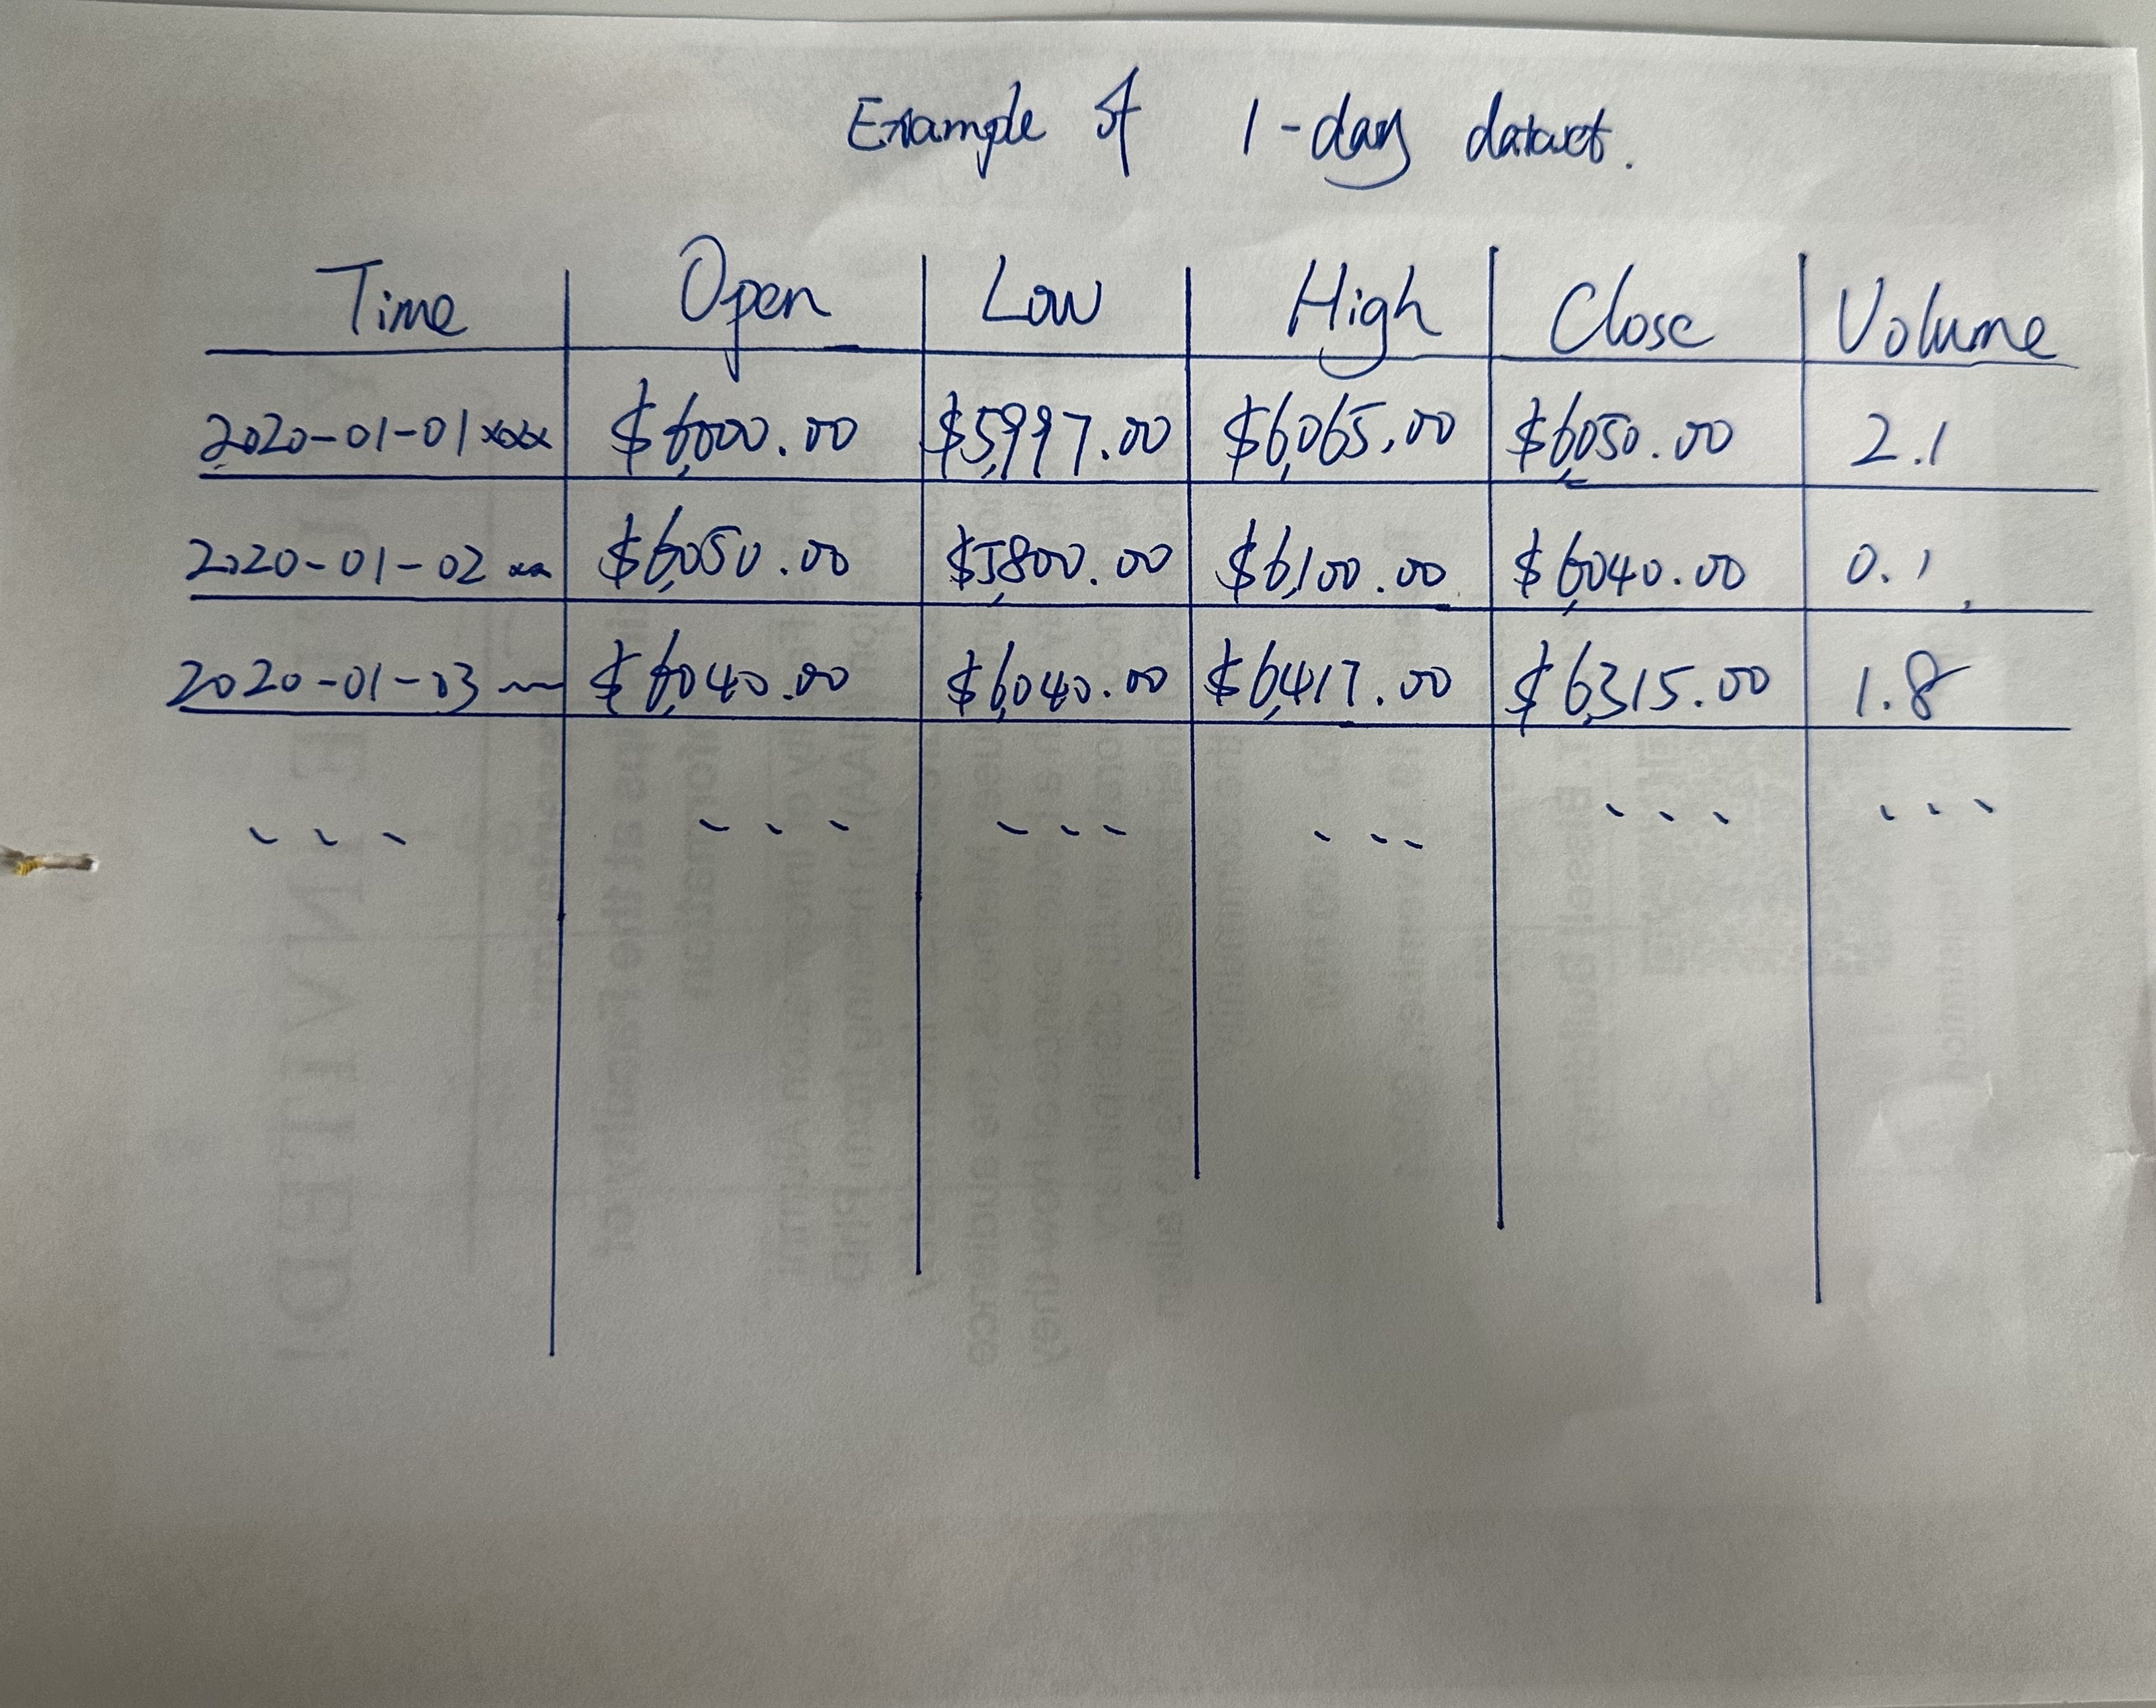 Example of 1-day dataset.
Time Open Low High Close Volume
2020-01-01 xxx $6,000.00 $5,997.00 $6,065.00 $6,050.00 2.1
2020-01-02 xx $6,050.00 $5,800.00 $6,100.00 $6,040.00 0.1
2020-01-03 $6,040.00 $6,040.00 $6,417.00 $6,315.00 1.8
... ... ... ... ... ...